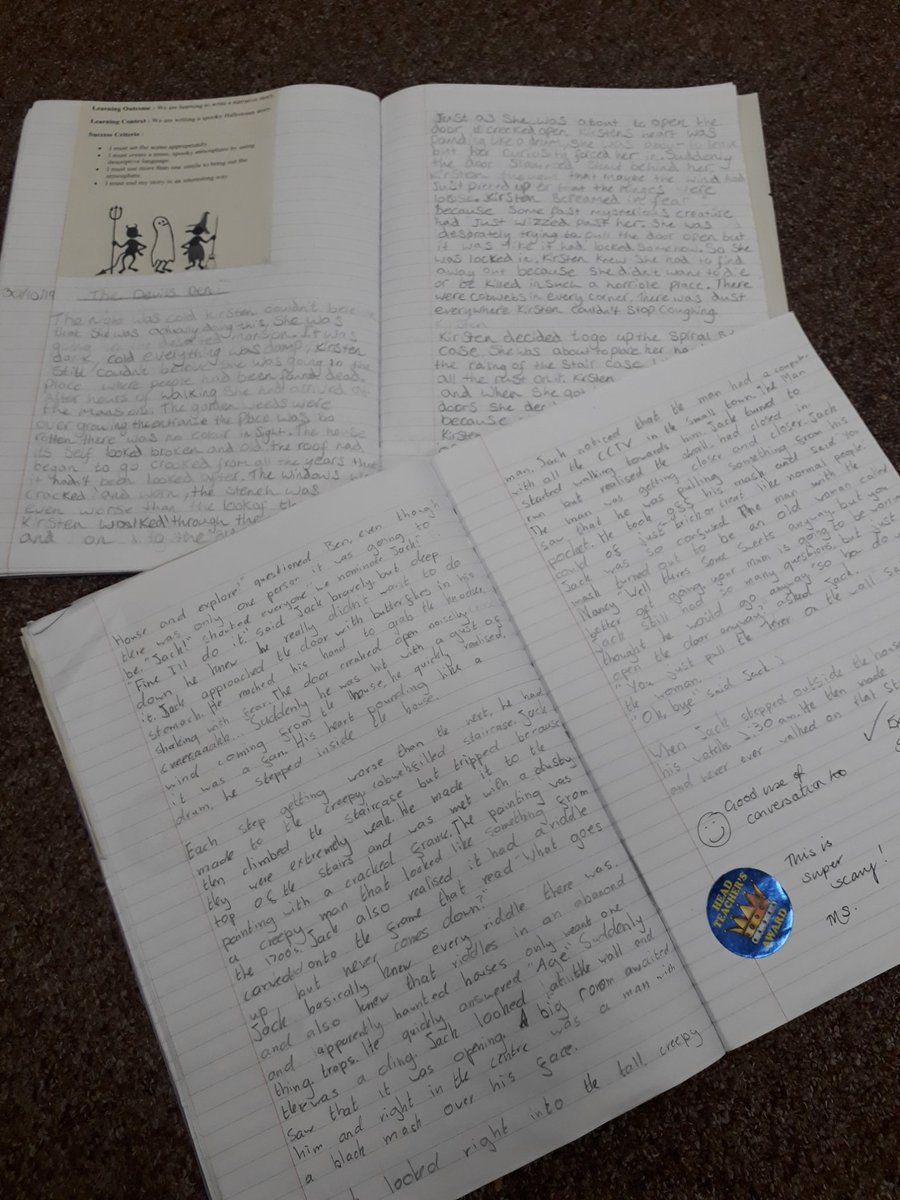 Learning Outcome : We are learning to write a narrative story.
Learning Context : We are writing a spooky Halloween story.
Success Criteria :
I must set the scene appropriately
I must create a tense, spooky atmosphere by using
descriptive language.
I must use more than one simile to bring out the
atmosphere.
I must end my story in an interesting way
30/10/19
The Devils Den
The night was cold Kirsten couldn't believe
that she was actually doing this, she was
going to the deserted mansion. It was
dark, cold everything was damp, Kirsten
still couldn't believe she was going to the
place where people had been found dead.
After hours of walking she had arrived at
the mansion. The garden weeds were
over growing the entrance the place was so
rotten there was no colour in sight. The house
its self looked broken and old the roof had
began to go cracked from all the years that
it hadn't been looked after. The windows
cracked and worn, the stench was
even worse than the look of the
Kirsten walked through the
and on to the
Just as she was about to open the
door, it cracked open Kirstens heart was
pounding like a drum, she was about to
but her curiosity forced her in. Suddenly
the door slammed shut behind her,
Kirsten that maybe the wind had
just picked up or that the hinges were
loose. Kirsten screamed in fear
because some fast mysterious creature
had just wizzed past her. She was
desprately trying to pull the door open but
it was like it had locked somehow. So she
was locked in. Kirsten knew she had to find
away out because she didn't want to die
or be killed in such a horrible place. There
were cobwebs in every corner, There was dust
everywhere Kirsten couldn't stop coughing.
Kirsten
Kirsten decided to go up the spiral
case. She was about to place her
the railing of the stair case
all the rust on it. Kirsten
and when she got
doors she
because
Kirsten
House and explore" questioned Ben, even though
there was only one person it was going to
be. "Jack!" shouted everyone "we nominate Jack"
"Fine I'll do it" said Jack bravely but deep
down he knew he really didn't want to do
it. Jack approached the door with butterflies in his
stomach. He reached his hand to grab the knocker
shaking with fear. The door creaked open noisily
Suddenly he was hit with a gust of
wind coming from the house, he quickly realised,
it was a fan. His heart pounding like a
drum, he stepped inside the house.
Each step getting worse than the next, he had
made to the creepy, cobwebfilled staircase. Jack
then climbed the staircase but tripped because
they were extremely weak. He made it to the
top of the stairs and was met with a dusty
painting with a cracked frame. The painting was
a creepy man that looked like something from
the 1700s. Jack also realised it had a riddle
carved onto the frame that read "What goes
up but never comes down?"
Jack basically knew every riddle there was.
and also knew that riddles in an abanond
and apparently haunted houses only meant one
thing. traps. He quickly answered "Age". Suddenly
there was a ding. Jack looked at the wall and
saw that it was opening. A big room awaited
him and right in the centre was a man with
a black mask over his face.
looked right into the tall, creepy
man. Jack noticed that the man had a computer
with all the CCTV in the small town. The Man
started walking towards him. Jack turned to
run but realised the wall had closed in.
The man was getting closer and closer. Jack
saw that he was pulling something from his
pocket. He took off his mask and said "You
could of just trick or treat like normal people."
Jack was so confused. The man with the
mask turned out to be an old woman called
Nancy "Well theres some sweets anyway but you
better get going your mum is going to be worried"
Jack still had so many questions but just
thought he would go anyway "so how do
open the door anyway" asked Jack.
"You just pull the lever on the wall"
the woman.
"Oh, bye" said Jack
When Jack stepped outside the house
his watch 2.30am. He then made
and never ever walked on that
Good use of
conversation to
This is
super
scary!
MS.
HEAD
TEACHER'S
AWARD